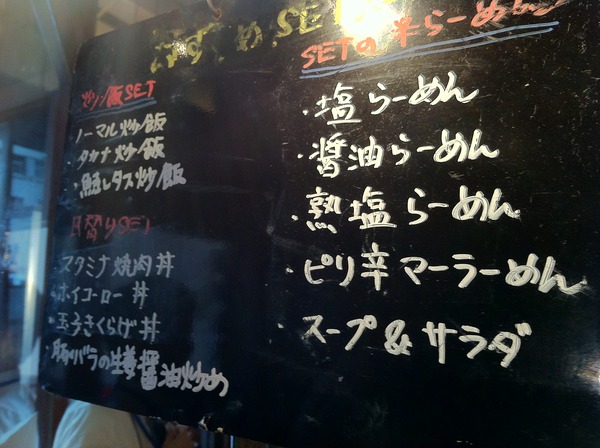 おすすめSET
炒飯SET
・ノーマル炒飯
・タカナ炒飯
・鮭レタス炒飯
日替りSET
・スタミナ焼肉丼
・ホイコーロー丼
・玉子きくらげ丼
・豚バラの生姜醤油炒め
SETの半らーめん
・塩らーめん
・醤油らーめん
・熟塩らーめん
・ピリ辛マーラーめん
・スープ&サラダ